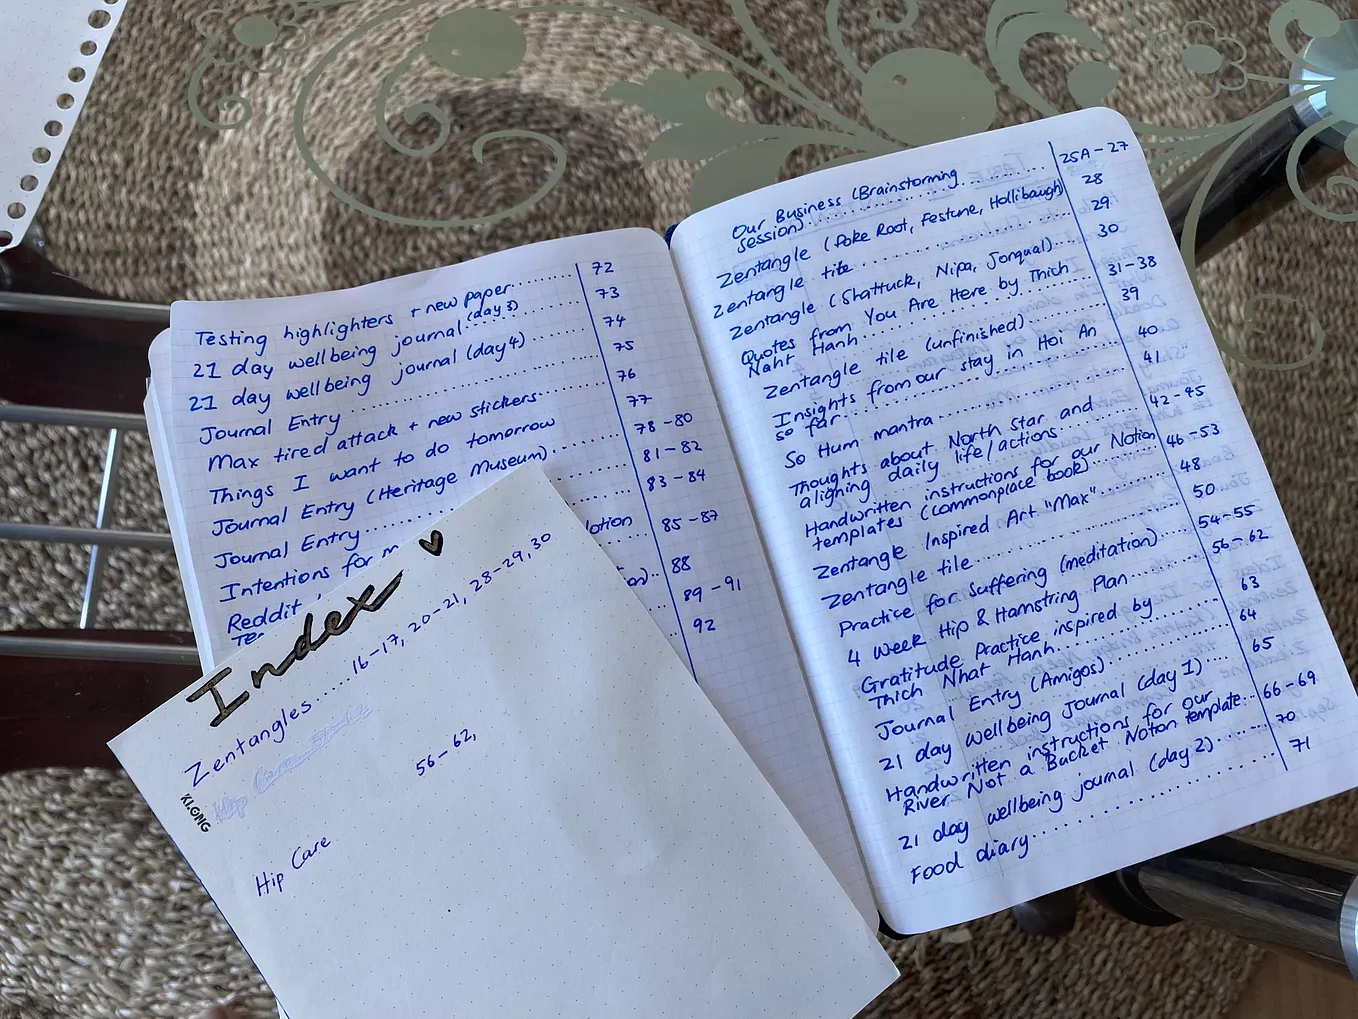 Testing highlighters + new paper........ 72
21 day wellbeing journal (day 3)........ 73
21 day wellbeing journal (day 4)........ 74
Journal Entry ........ 75
Max tired attack + new stickers........ 76
Things I want to do tomorrow 77
Journal Entry (Heritage Museum)........ 78-80
Journal Entry ........ 81-82
Intentions for 83-84
Reddit lotion 85-87
88
89-91
92
Index ♥
Zentangles...... 16-17, 20-21, 28-29, 30
56-62,
KI.GNG
Hip Care
Our Business (Brainstorming
session)........ 25A-27
Zentangle (Poke Root, Festune, Hollibaugh) 28
Zentangle tile ........ 29
Zentangle (Shattuck, Nipa, Jonqual)... 30
Quotes from You Are Here by Thich
Naht Hanh........ 31-38
Zentangle tile (unfinished)........ 39
Insights from our stay in Hoi An
so far........ 40
So Hum mantra ........ 41
Thoughts about North Star and
aligning daily life/actions........ 42-45
Handwritten instructions for our Notion
templates (commonplace book)........ 46-53
Zentangle Inspired Art "Max"........ 48
Zentangle tile........ 50
Practice for Suffering (meditation)..... 54-55
4 Week Hip & Hamstring Plan........ 56-62
Gratitude Practice inspired by
Thich Nhat Hanh........ 63
Journal Entry (Amigos)........ 64
21 day wellbeing Journal (day 1).... 65
Handwritten instructions for our
River Not a Bucket Notion template... 66-69
21 day wellbeing journal (day 2)...... 70
Food diary........ 71